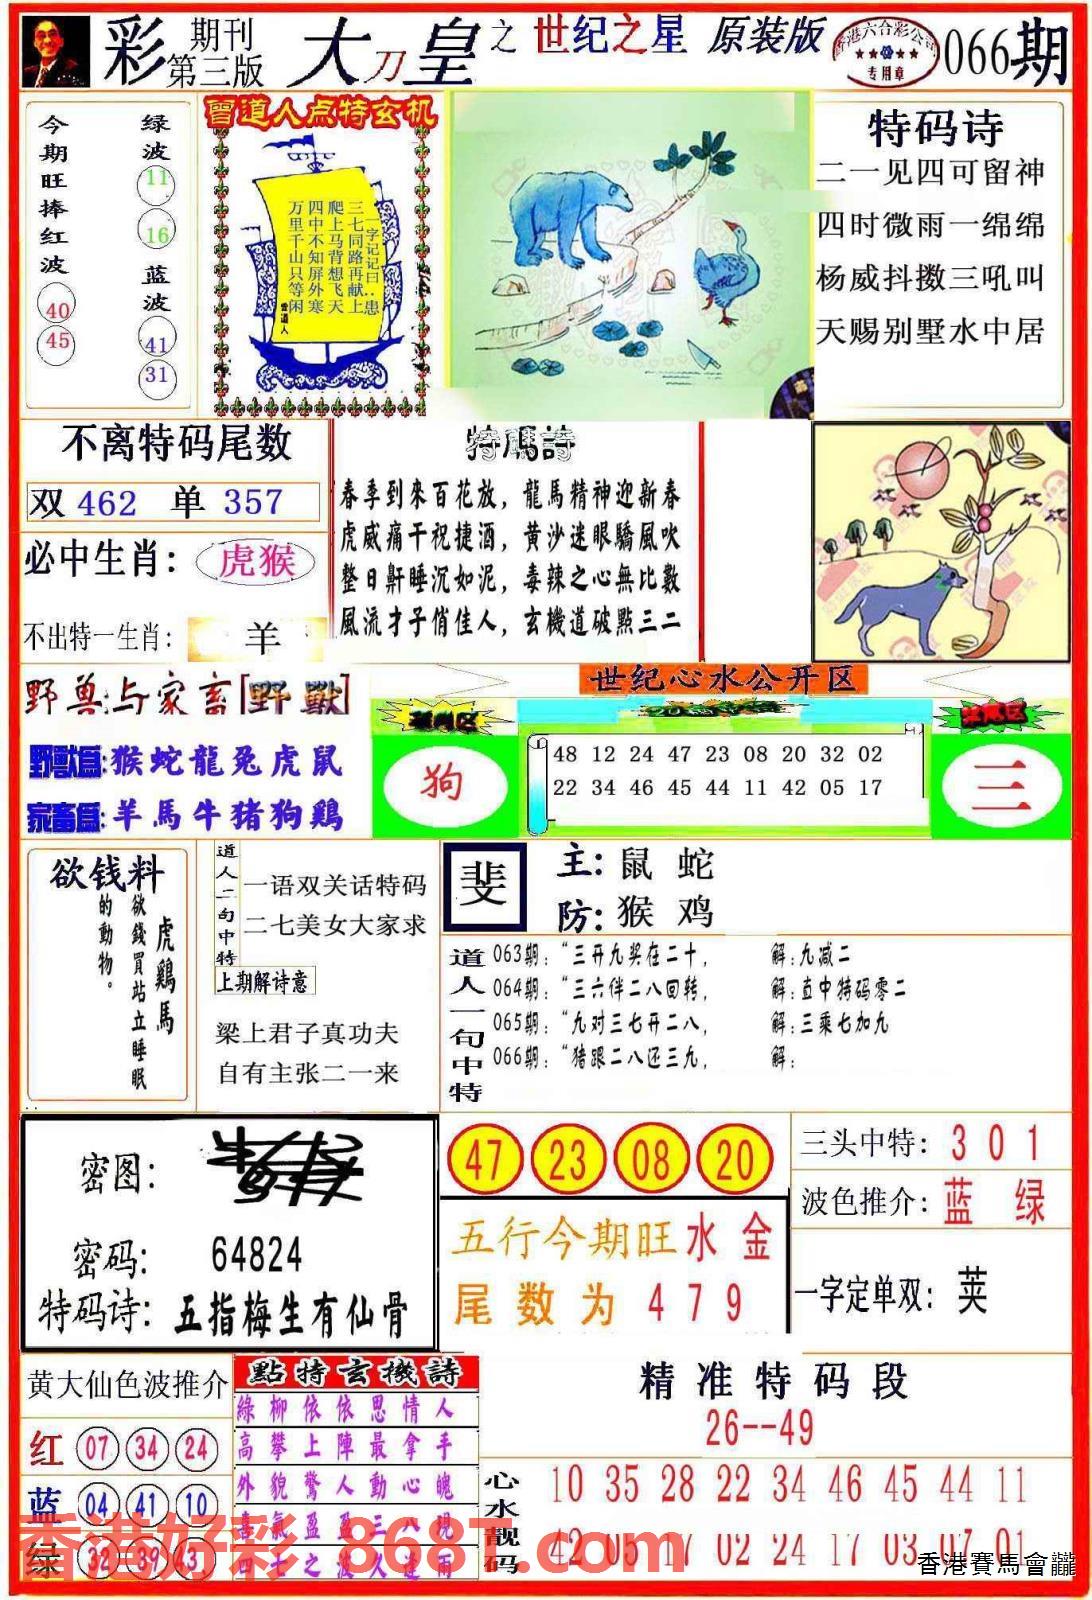 彩 期刊 第三版 大刀皇 之 世纪之星 原装版 香港六合彩公司 专用章 066期
今期旺捧红波
40
45
绿波
11
16
蓝波
41
31
曾道人点特玄机
一字记记曰:患
三七同路再献上
爬上马背想飞天
四中不知屏外寒
万里千山只等闲
曾道人
特码诗
二一见四可留神
四时微雨一绵绵
杨威抖擞三吼叫
天赐别墅水中居
不离特码尾数
双 462 单 357
必中生肖: 虎猴
不出特一生肖: 羊
特碼詩
春季到來百花放，龍馬精神迎新春
虎威痛干祝捷酒，黄沙迷眼驕風吹
整日鼾睡沉如泥，毒辣之心無比數
風流才子俏佳人，玄機道破點三二
野兽与家畜[野獸]
野獸爲:猴蛇龍兔虎鼠
家畜爲:羊馬牛猪狗鷄
世纪心水公开区
狗
48 12 24 47 23 08 20 32 02
22 34 46 45 44 11 42 05 17
三
欲钱料
虎鷄馬
欲錢買站立睡眠
的動物。
道人二句中特
一语双关话特码
二七美女大家求
上期解诗意
梁上君子真功夫
自有主张二一来
斐
主: 鼠 蛇
防: 猴 鸡
道人一句中特
063期: “三开九奖在二十, 解:九减二
064期: “三六伴二八回转, 解:直中特码零二
065期: “九对三七开二八, 解:三乘七加九
066期: “猪跟二八还三九, 解:
密图:
密码: 64824
特码诗: 五指梅生有仙骨
47 23 08 20
五行今期旺 水 金
尾数为 4 7 9
三头中特: 3 0 1
波色推介: 蓝 绿
一字定单双: 荚
黄大仙色波推介
红 07 34 24
蓝 04 41 10
绿 32 39 43
點特玄機詩
綠柳依依思情人
高攀上陣最拿手
外貌驚人動心魄
喜氣盈盈三八現
四七之波久逢雨
精准特码段
26--49
心水靓码
10 35 28 22 34 46 45 44 11
42 05 17 02 24 17 03 07 01
香港好彩 868T.com
香港賽馬會